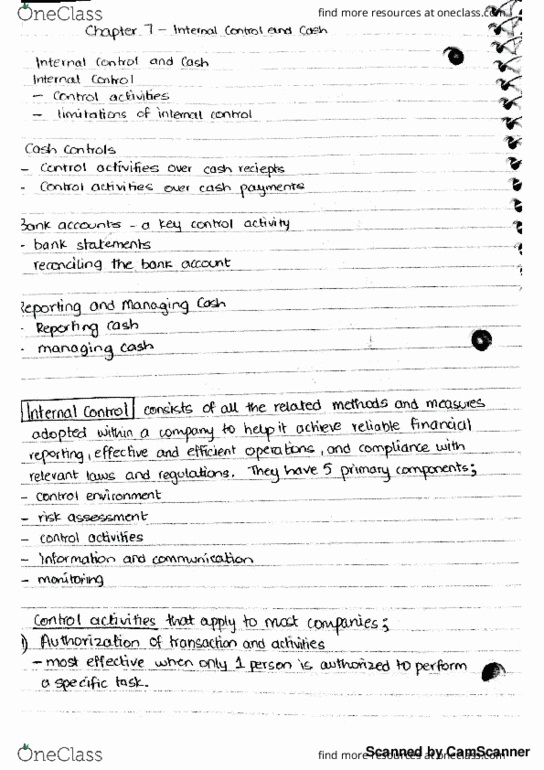 OneClass
find more resources at oneclass.com
Chapter 7 - Internal Control and Cash
Internal control and Cash
Internal Control
- Control activities
- limitations of internal control
Cash Controls
- Control activities over cash reciepts
- Control activities over cash payments
Bank accounts - a key control activity
- bank statements
reconciling the bank account
Reporting and Managing Cash
- Reporting cash
- managing cash
Internal Control consists of all the related methods and measures
adopted within a company to help it achieve reliable financial
reporting, effective and efficient operations, and compliance with
relevant laws and regulations. They have 5 primary components;
- control environment
- risk assessment
- control activities
- information and communication
- monitoring
Control activities that apply to most companies;
1) Authorization of transaction and activities
- most effective when only 1 person is authorized to perform
a specific task.
OneClass
find more resources at oneclass.com
Scanned by CamScanner